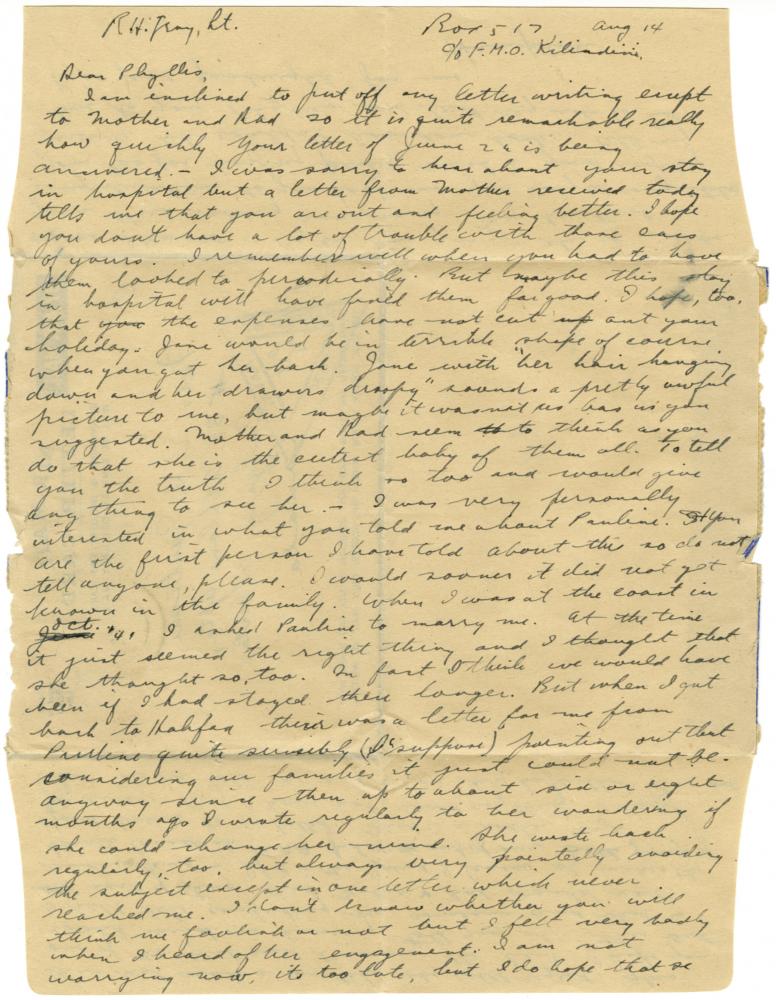 R.H. Gray, Lt. Box 517 Aug 14
c/o F.M.O. Kilindini.
Dear Phyllis,
I am inclined to put off any letter writing exept
to Mother and Dad so it is quite remarkable really
how quickly your letter of June 24 is being
answered. - I was sorry to hear about your stay
in hospital but a letter from Mother received today
tells me that you are out and feeling better. I hope
you don't have a lot of trouble with those ears
of yours. I remember well when you had to have
them looked to periodically. But maybe this stay
in hospital will have fixed them for good. I hope, too,
that you the expenses have not cut up out your
holiday. Jane would be in terrible shape of course
when you got her back. Jane with "her hair hanging
down and her drawers droopy" sounds a pretty awful
picture to me, but maybe it was not as bas as you
suggested. Mother and Dad seem to think as you
do that she is the cutest baby of them all. To tell
you the truth I think so too and would give
any thing to see her. - I was very personally
interested in what you told me about Pauline. You
are the first person I have told about this so do not
tell anyone, please. I would sooner it did not get
known in the family. When I was at the coast in
June Oct. '41 I asked Pauline to marry me. At the time
it just seemed the right thing and I thought that
she thought so, too. In fact I think we would have
been if I had stayed there longer. But when I got
back to Halifax there was a letter for me from
Pauline quite sensibly (I suppose) pointing out that
considering our families it just could not be.
anyway since then up to about six or eight
months ago I wrote regularly to her wondering if
she could change her mind. She wrote back
regularly, too, but always very pointedly avoiding
the subject except in one letter which never
reached me. I don't know whether you will
think me foolish or not but I felt very badly
when I heard of her engagement. I am not
worrying now, its too late, but I do hope that se